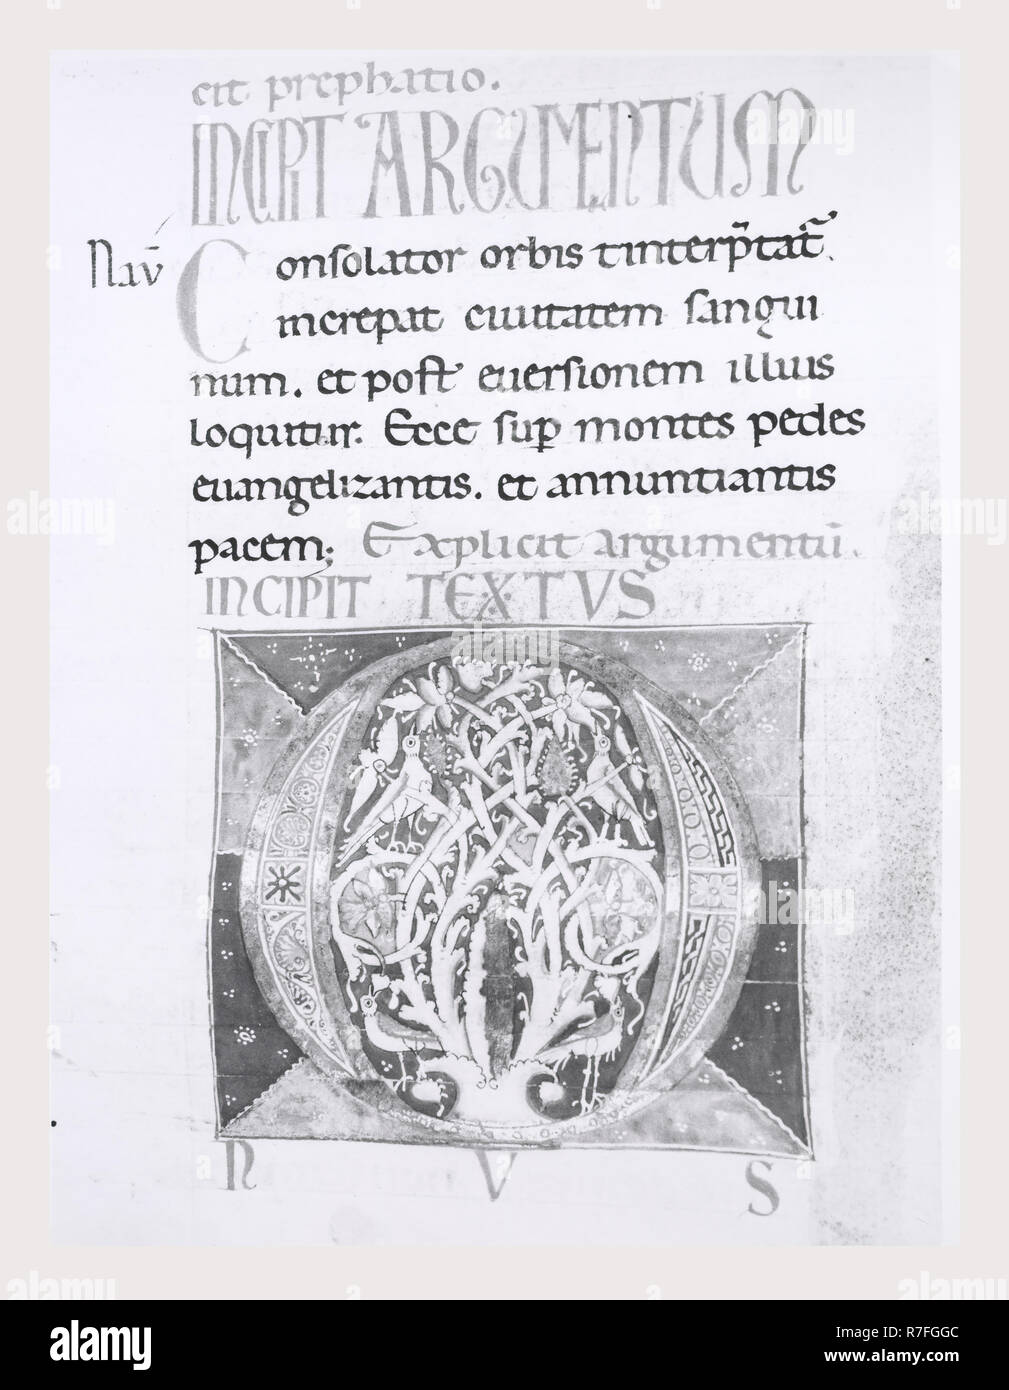 eit prephatio.
INCIPIT ARGUMENTUM
Naū Consolator orbis t interp̄tat̄.
increpat ciuitatem sangui
num. et post euersionem illius
loquitur. Ecce sup̄ montes pedes
euangelizantis. et annuntiantis
pacem; Explicit argumentū.
INCIPIT TEXTVS
O
N V S
alamy
Image ID: R7FGGC
www.alamy.com